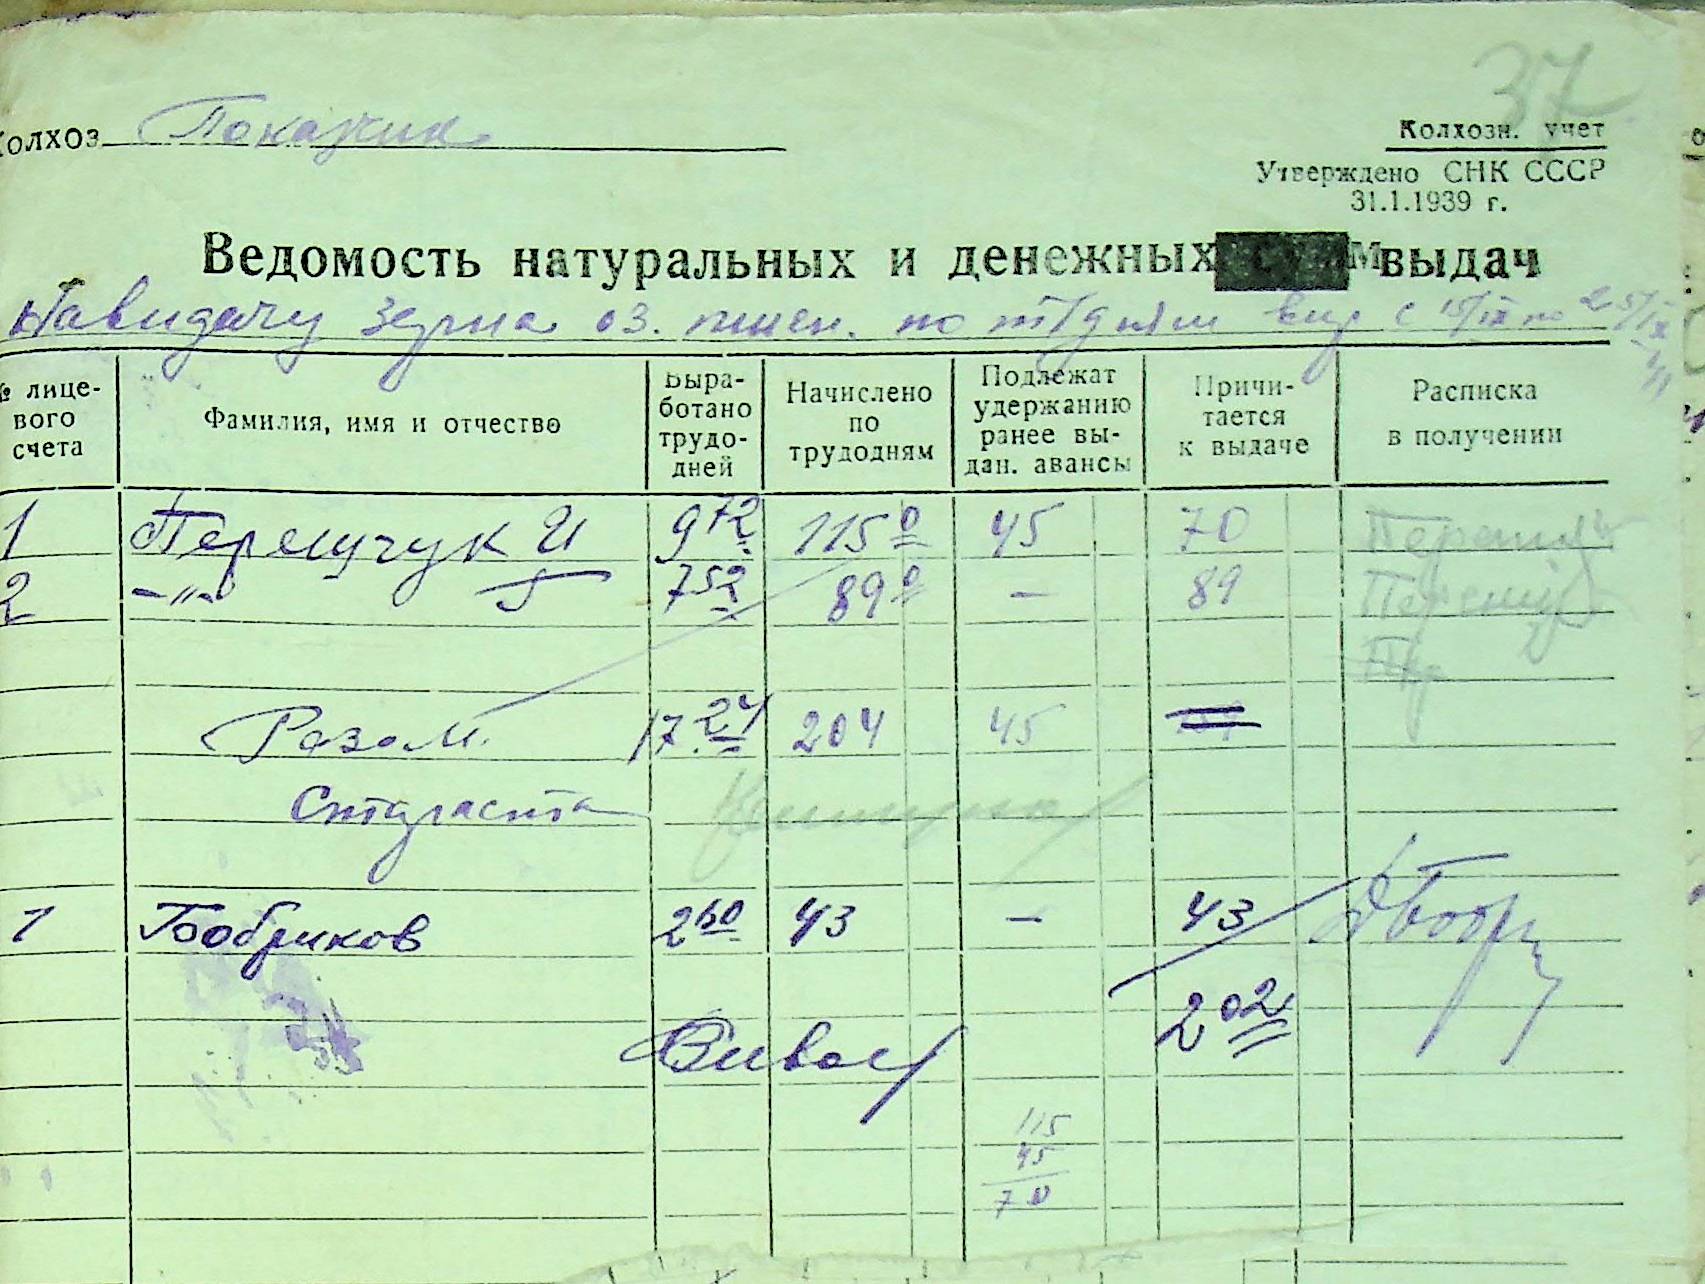 37
Колхозн. учет
колхоз Показчик
Утверждено СНК СССР
31.1.1939 г.
Ведомость натуральных и денежных выдач
На видачу зерна оз. пшен. по т/дням вир с 15/IX по 25/IX
№ лице-
вого
счета
Фамилия, имя и отчество
Выра-
ботано
трудо-
дней
Начислено
по
трудодням
Подлежат
удержанию
ранее вы-
дан. авансы
Причи-
тается
к выдаче
Расписка
в получении
1 972 115 0 45 70
2 -"- 752 89 0 — 89
Разом. 17.24 204 45
1 Бобриков 260 43 — 43
202
115
45
70